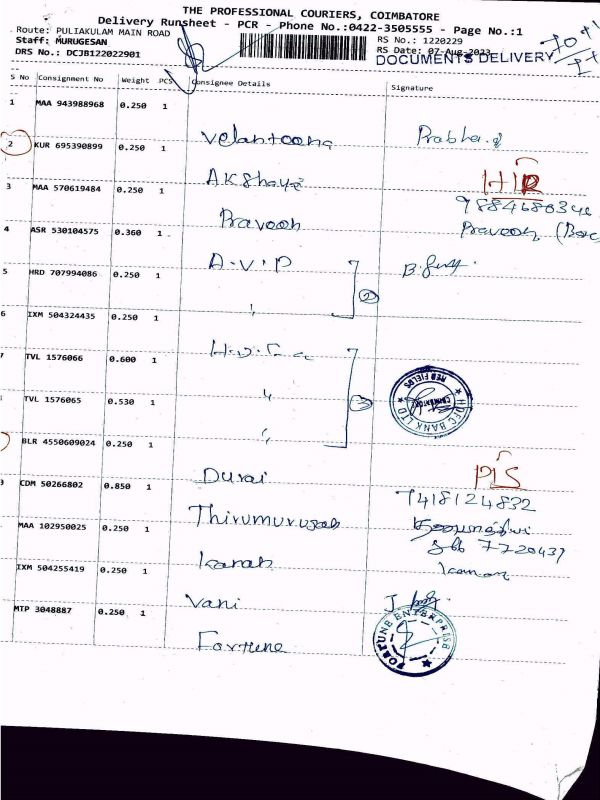 THE PROFESSIONAL COURIERS, COIMBATORE
Delivery Runsheet - PCR - Phone No.:0422-3505555 - Page No.:1
Route: PULIAKULAM MAIN ROAD
RS No.: 1220229
Staff: MURUGESAN
RS Date: 07-Aug-2023
DRS No.: DCJB122022901
DOCUMENTS DELIVERY
S No Consignment No Weight PCS Consignee Details Signature
1 MAA 943988968 0.250 1
Velantoona Prabha.g
2 KUR 695390899 0.250 1
Akshaya HIR
3 MAA 570619484 0.250 1
Praveen Praveen
4 ASR 530104575 0.360 1
A.V.P
5 HRD 707994086 0.250 1
"
2
6 IXM 504324435 0.250 1
H.D.F.C
7 TVL 1576066 0.600 1
"
HDFC BANK LTD
RED FIELDS
COIMBATORE
TVL 1576065 0.530 1
"
BLR 4550609024 0.250 1
Durai PLS
7418124832
CDM 50266802 0.850 1
Thirumurugan
7720437
MAA 102950025 0.250 1
Karan
IXM 504255419 0.250 1
Vani J
MTP 3048887 0.250 1
Fortune
FORTUNE ENTERPRISE